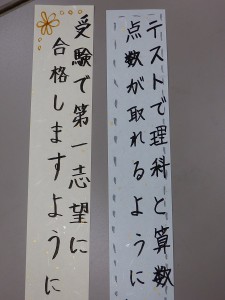 テストで理科と算数
点数が取れるように
受験で第一志望に
合格しますように